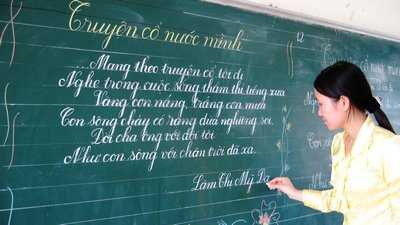 Truyện cổ nước mình
...Mang theo truyện cổ tôi đi
Nghe trong cuộc sống thầm thì tiếng xưa
Vàng cơn nắng, trắng cơn mưa
Con sông chảy có rặng dừa nghiêng soi.
Đời cha ông với đời tôi
Như con sông với chân trời đã xa.
Lâm Thị Mỹ Dạ